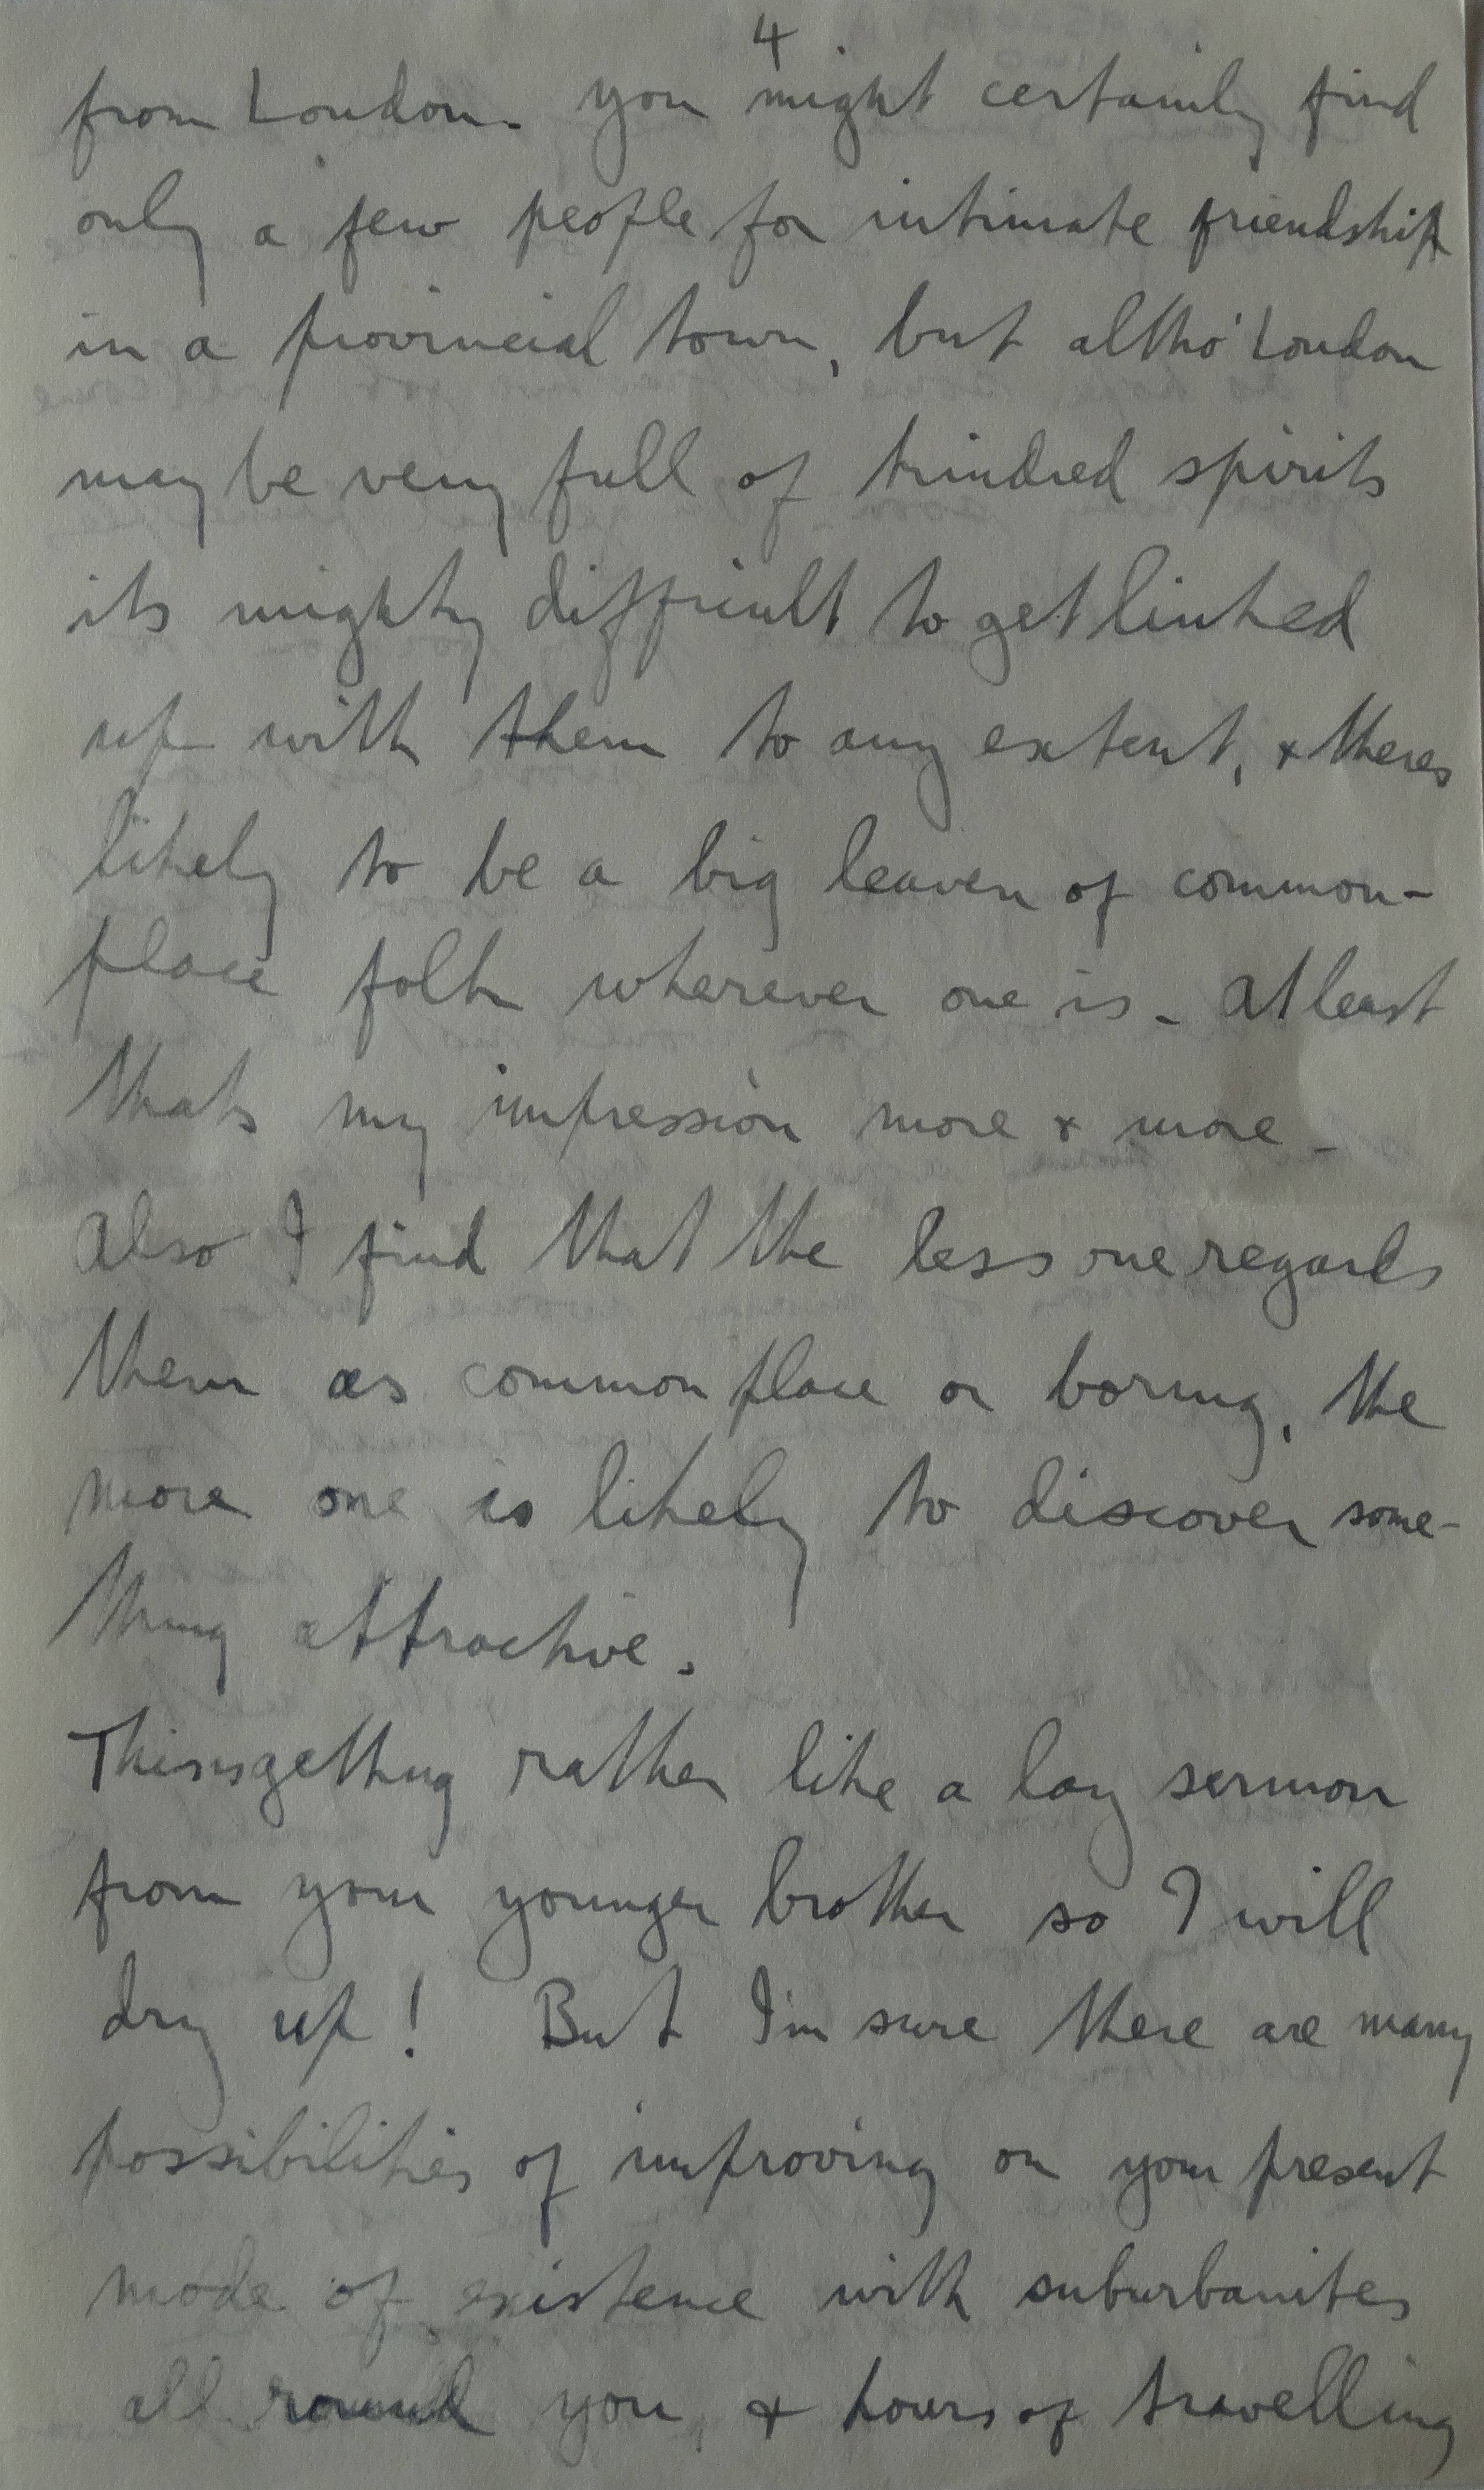 4
from London. you might certainly find
only a few people for intimate friendship
in a provincial town, but altho' London
may be very full of kindred spirits
its mighty difficult to get linked
up with them to any extent, & theres
likely to be a big leaven of common-
place folk wherever one is - at least
thats my impression more & more -
Also I find that the less one regards
them as commonplace or boring, the
more one is likely to discover some-
thing attractive.
This is getting rather like a lay sermon
from your younger brother so I will
dry up! But I'm sure there are many
possibilities of improving on your present
mode of existence with suburbanites
all round you, & hours of travelling